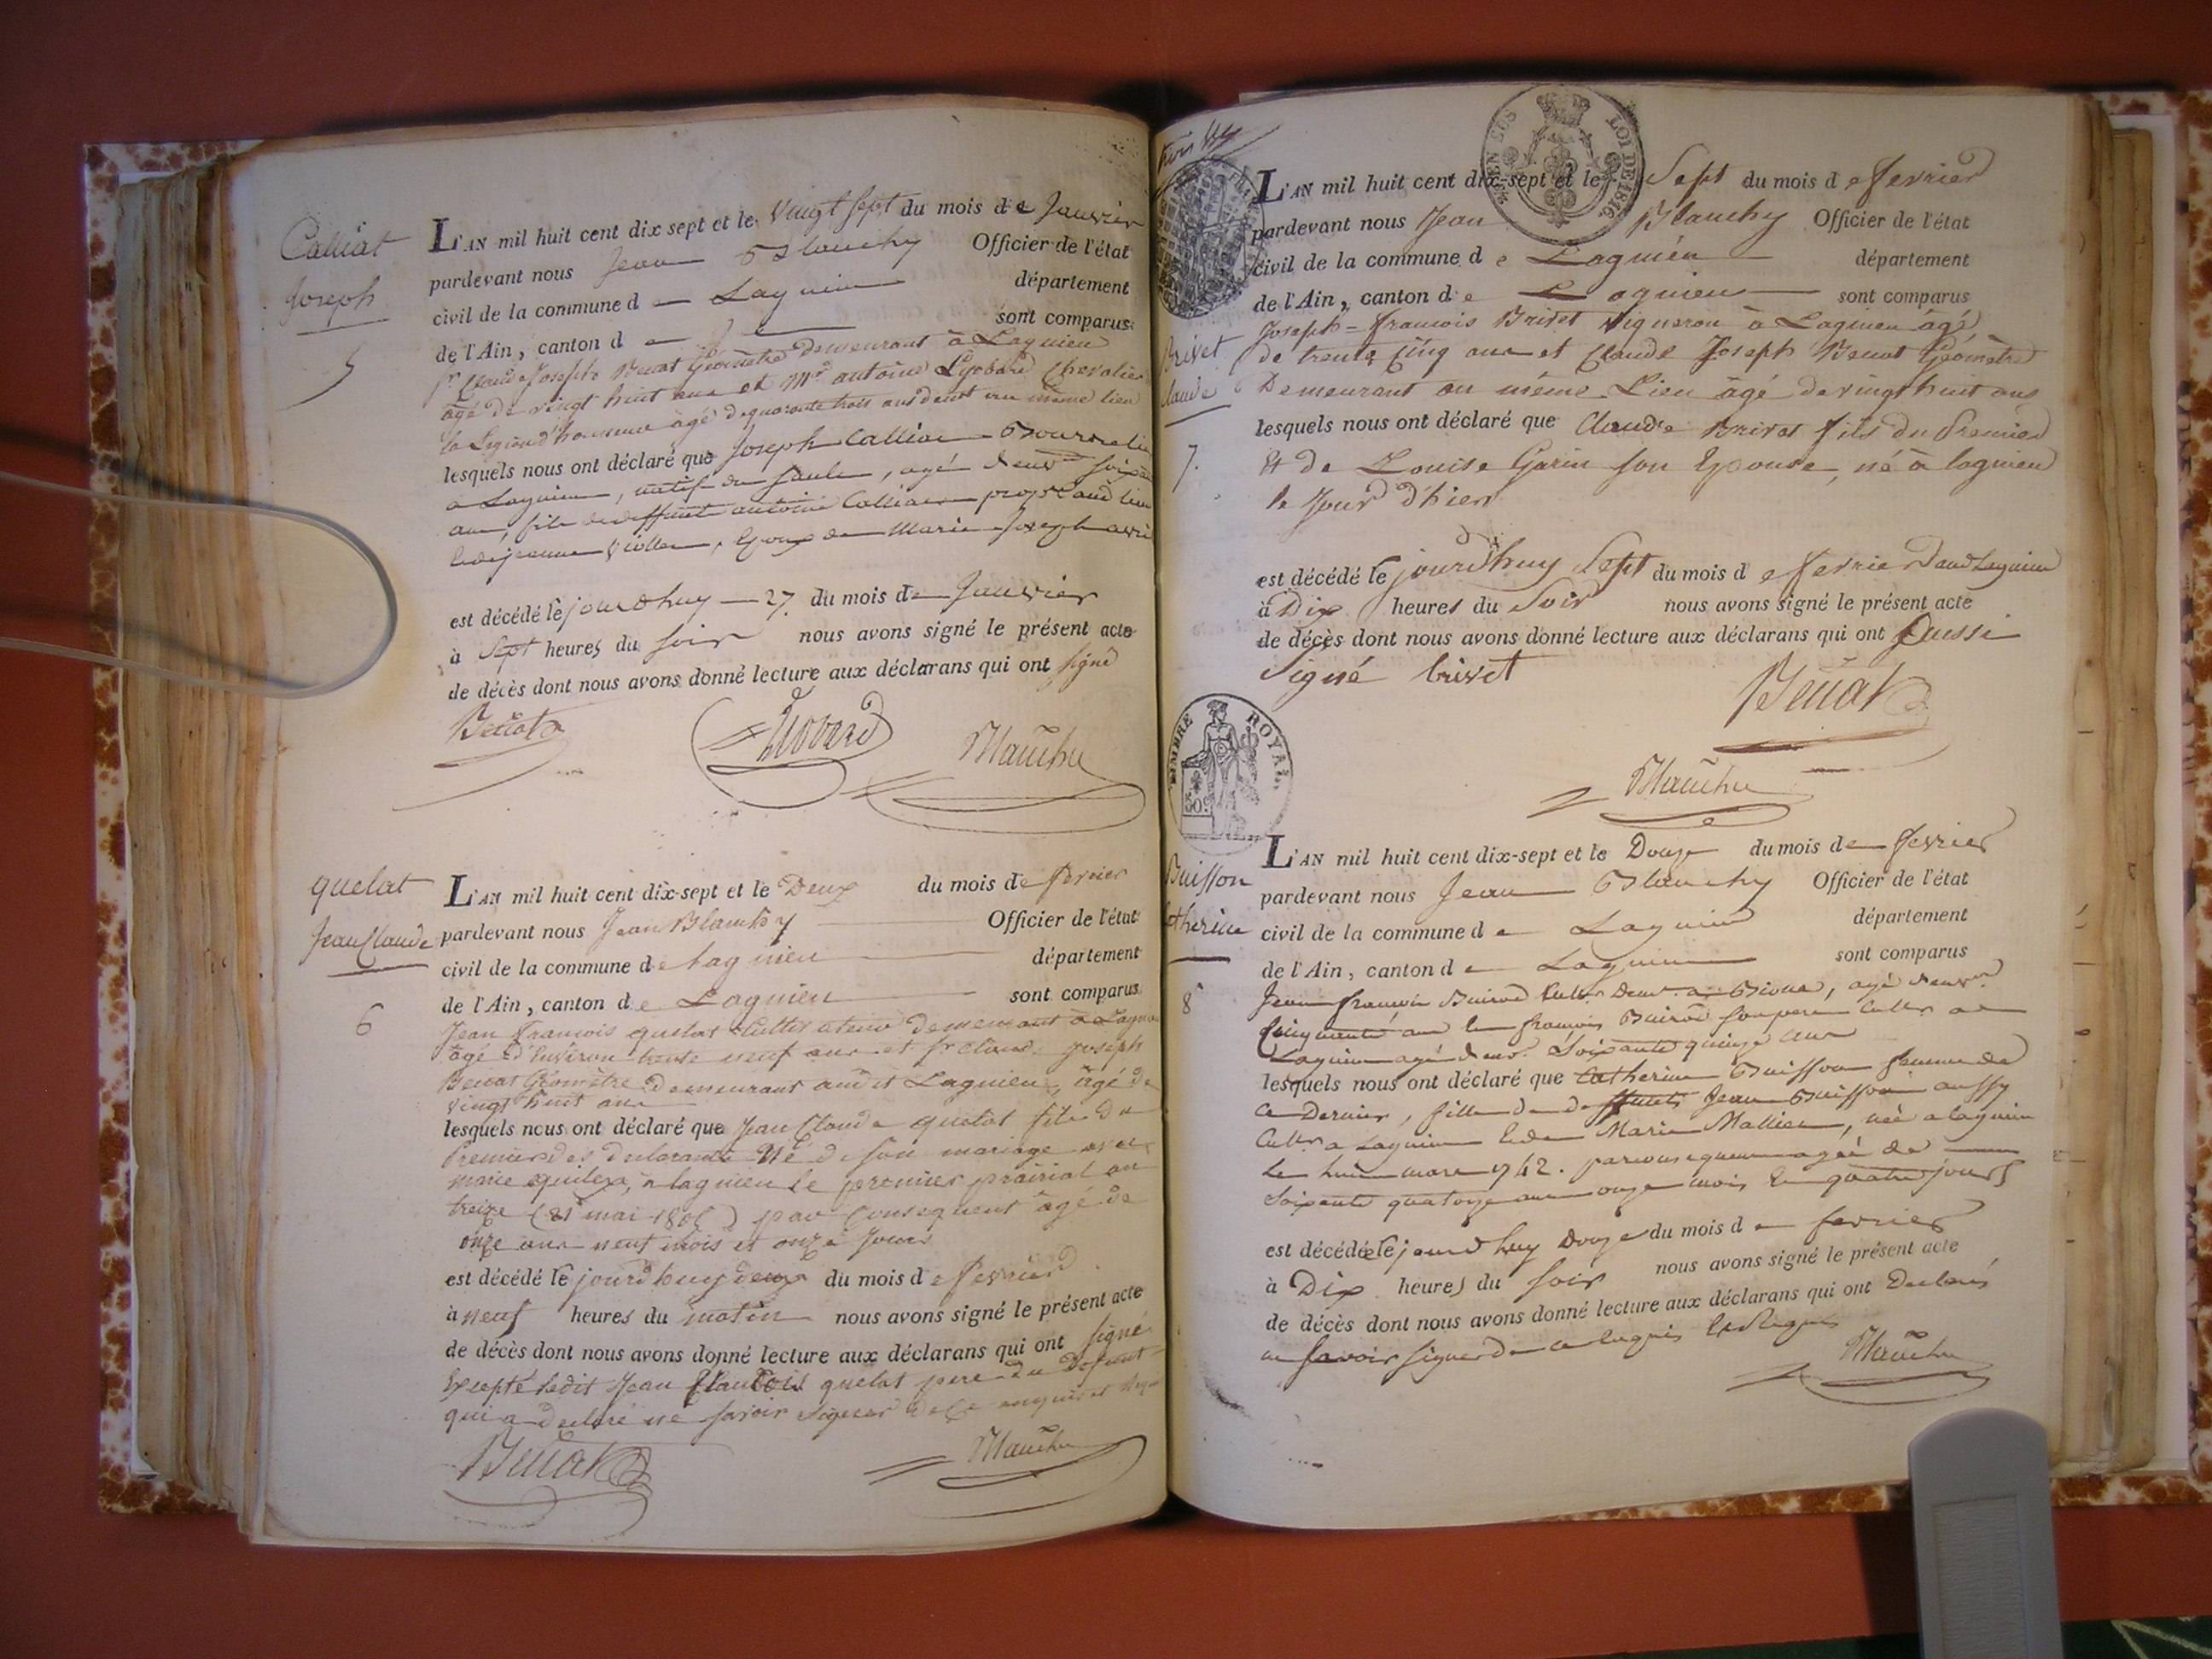 Calliat
Joseph
5
L'AN mil huit cent dix sept et le vingt sept du mois de Janvier
pardevant nous Jean Blanchy Officier de l'état
civil de la commune de Lagnieu département
de l'Ain, canton d sont comparus
Sr Claude Joseph Benat Géomètre demeurant à Lagnieu
âgé de vingt huit ans et Mr antoine Lyobard Chevalier
la Legion d'honneur agé de quarante trois ans au même lieu
lesquels nous ont déclaré que Joseph Calliat Bourrelier
a Lagnieu, natif du saule, agé d'env. soixante
ans, fils de deffunt antoine Calliat
, Epoux de Marie Joseph
est décédé le jourdhuy 27 du mois de Janvier
à Sept heures du soir nous avons signé le présent acte
de décès dont nous avons donné lecture aux déclarans qui ont signé
Benat Liobard Blanchy
quelat
Jean Claude
6
L'AN mil huit cent dix-sept et le Deux du mois de fevrier
pardevant nous Jean Blanchy Officier de l'état
civil de la commune de Lagnieu département
de l'Ain, canton de Lagnieu sont comparus
Jean François quelat Cultivateur demeurant à Lagnieu
âgé d'Environ trente neuf ans et sr Claude Joseph
Benat Géomètre demeurant audit Lagnieu, âgé de
vingt huit ans
lesquels nous ont déclaré que Jean Claude quelat fils du
Premier des declarants Né de son mariage avec
marie, à lagnieu le premier prairial an
treize (21 mai 1805) par Consequent âgé de
onze ans neuf mois et onze Jours
est décédé le jourdhuy deux du mois de fevrier
à neuf heures du matin nous avons signé le présent acte
de décès dont nous avons donné lecture aux déclarans qui ont signé
Excepté ledit Jean François quelat pere du Defunt
qui a declaré ne savoir signer de ce enquis et Requis
Benat Blanchy
Brivet
Claude
7.
L'AN mil huit cent dix-sept et le Sept du mois de fevrier
pardevant nous Jean Blanchy Officier de l'état
civil de la commune de Lagnieu département
de l'Ain, canton de Lagnieu sont comparus
Joseph-francois Brivet Vigneron à Lagnieu âgé
de trente cinq ans et Claude Joseph Benat Géomètre
Demeurant au même Lieu âgé de vingt huit ans
lesquels nous ont déclaré que Claude Brivet fils du Premier
Et de Louise Garin son Epouse, né à lagnieu
le Jour d'hier
est décédé le jourdhuy Sept du mois de fevrier Lagnieu
à Dix heures du Soir nous avons signé le présent acte
de décès dont nous avons donné lecture aux déclarans qui ont aussi
Signé brivet Benat
Blanchy
LOI DE 1816.
TIMBRE ROYAL
50c
Buisson
Catherine
8
L'AN mil huit cent dix-sept et le Douze du mois de fevrier
pardevant nous Jean Blanchy Officier de l'état
civil de la commune de Lagnieu département
de l'Ain, canton de Lagnieu sont comparus
Jean francois, agé d'env.
Cinquante ans son pere Cultr a
Lagnieu agé d'env. Soixante quinze ans
lesquels nous ont déclaré que Catherine Buisson femme de
Ce Dernier, fille de deffunts Jean Buisson aussy
Cultr a Lagnieu Marie Mallien, née a lagnieu
Le huit mars 1742. par consequent agée de
Soixante quatorze ans onze mois Et quatre jours
est décédée le jourdhuy Douze du mois de fevrier
à Dix heures du soir nous avons signé le présent acte
de décès dont nous avons donné lecture aux déclarans qui ont Declarés
ne savoir signer de ce Enquis Et Requis
Blanchy